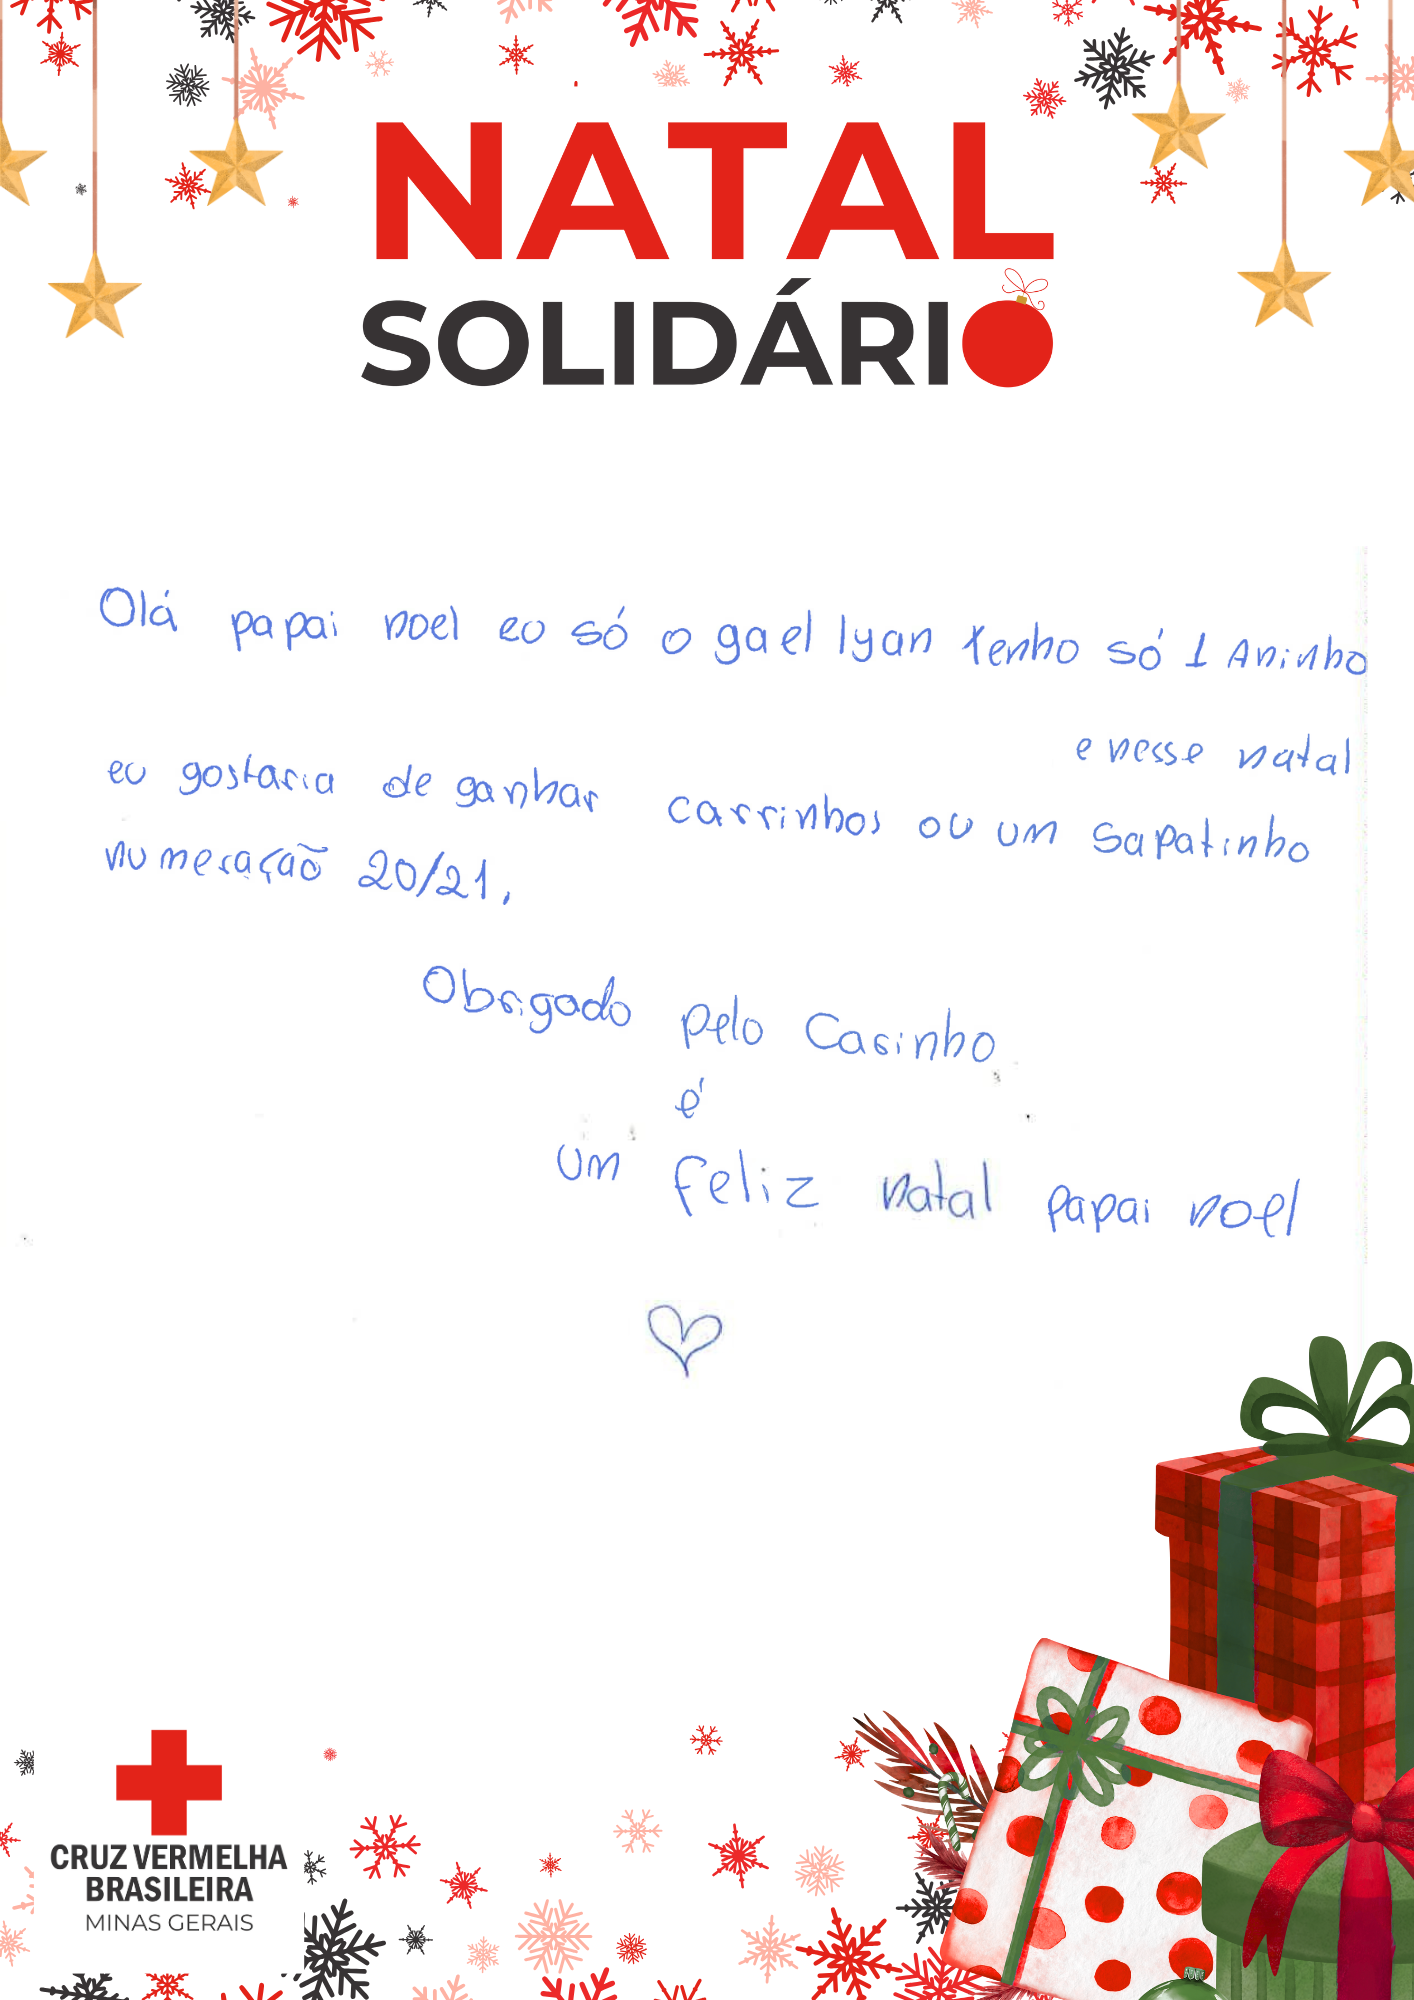 NATAL
SOLIDÁRIO
Olá papai noel eu só o gael lyan tenho só 1 Aninho
e nesse natal
eu gostaria de ganhar carrinhos ou um sapatinho
numeração 20/21.
Obrigado pelo Carinho
é
um feliz natal papai noel
CRUZ VERMELHA
BRASILEIRA
MINAS GERAIS